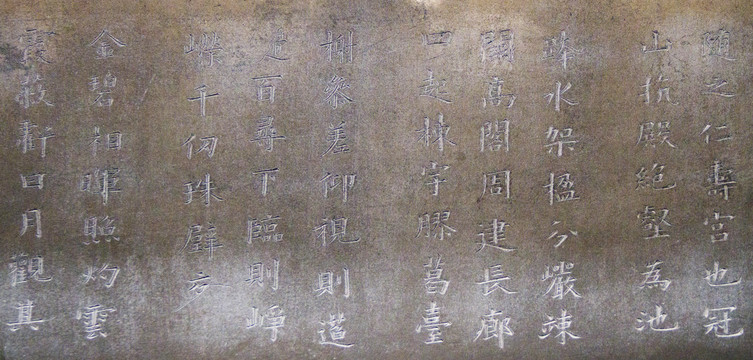 隨之仁壽宮也冠
山抗殿絕壑為池
跨水架楹分巖竦
闕高閣周建長廊
四起棟宇膠葛臺
榭參差仰視則迢
遞百尋下臨則崢
嶸千仞珠璧交
金碧相暉照灼雲
霞蔽虧日月觀其